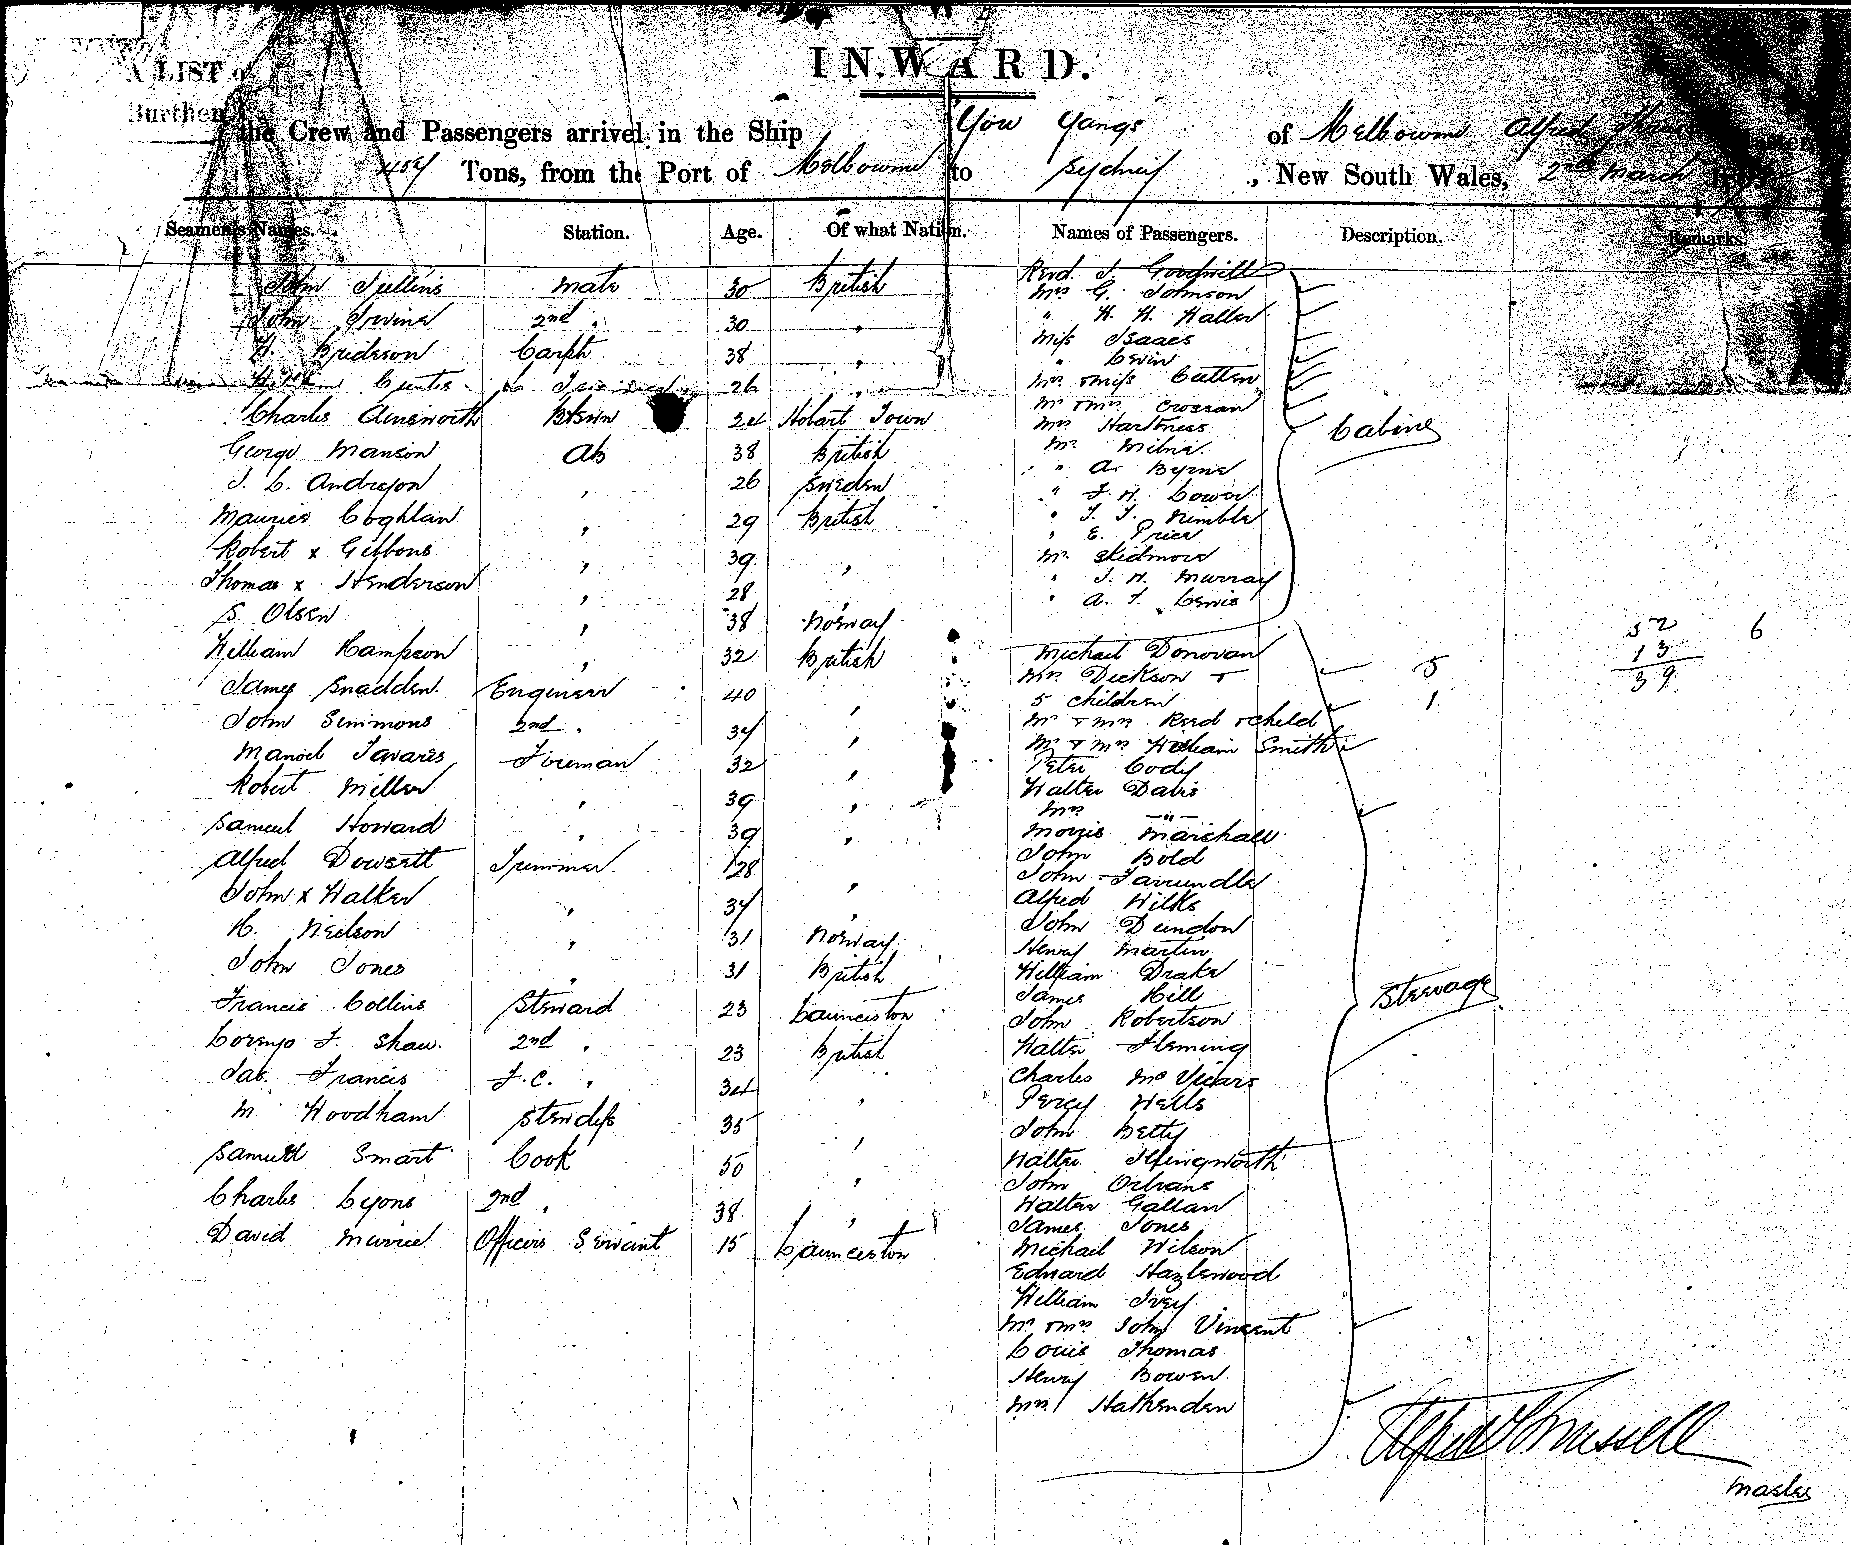 INWARD.
A LIST of
Burthen
the Crew and Passengers arrivel in the Ship You Yangs of Melbourne Alfred
457 Tons, from the Port of Melbourne to Sydney, New South Wales, 2nd March
Seamen's Names. Station. Age. Of what Nation. Names of Passengers. Description. Remarks.
John Jullins mate 30 British
John Irvine 2nd " 30 "
H. Brideson Carptr 38 "
Curtis 26 "
Charles Ainsworth Bosun 24 Hobart Town
George Manson AB 38 British
J. C. Andreson " 26 Sweden
Maurice Coghlan " 29 British
Robert x Gibbons " 39 "
Thomas x Henderson " 28 "
S. Olsen " 38 Norway
William Hampson " 32 British
James Snadden Engineer 40 "
John Simmons 2nd " 34 "
Manoel Tavares Fireman 32 "
Robert Miller " 39 "
Samuel Howard " 39 "
Alfred Dowsett Trimmer 28 "
John x Walker " 34 "
H. Neilson " 31 Norway
John Jones " 31 British
Francis Collins Steward 23 Launceston
Lorenzo F. Shaw. 2nd " 23 British
Jas. Francis F.C. " 34 "
M. Woodham Stewdss 35 "
Samuel Smart Cook 50 "
Charles Lyons 2nd " 38 "
David Murrie Officers Servant 15 Launceston
Revd. J. Goodwill
Mrs G. Johnson
" H. H. Haller
Miss Isaacs
" Levin
Mrs & Miss Cutten
Mr & Mrs Crossan
Mrs Harkness
Mr. Milne.
" A. Byrne
" F. H. Cower
" T. F. Kimble
" E. Price
Mr. Skidmore
" J. H. Murray
" A. T. Lewis
Cabins
Michael Donovan
Mrs. Dickson +
5 children
Mr & Mrs Reed & child
Mr & Mrs William Smith
Peter Cody
Walter Davis
Mrs -"-
Morris Marshall
John Bold
John Farrundle
Alfred Wilks
John Dundon
Henry Martin
William Drake
James Hill
John Robertson
Walter Fleming
Charles McVicars
Percy Wells
John Betty
Walter Illingworth
John Orleans
Walter Gallan
James Jones
Michael Wilson
Edward Hazlewood
William Ivey
Mr & Mrs John Vincent
Louis Thomas
Henry Bowen
Mrs Hathenden
Steerage
5
1
52 6
13
39
Alfred Trussell
Master